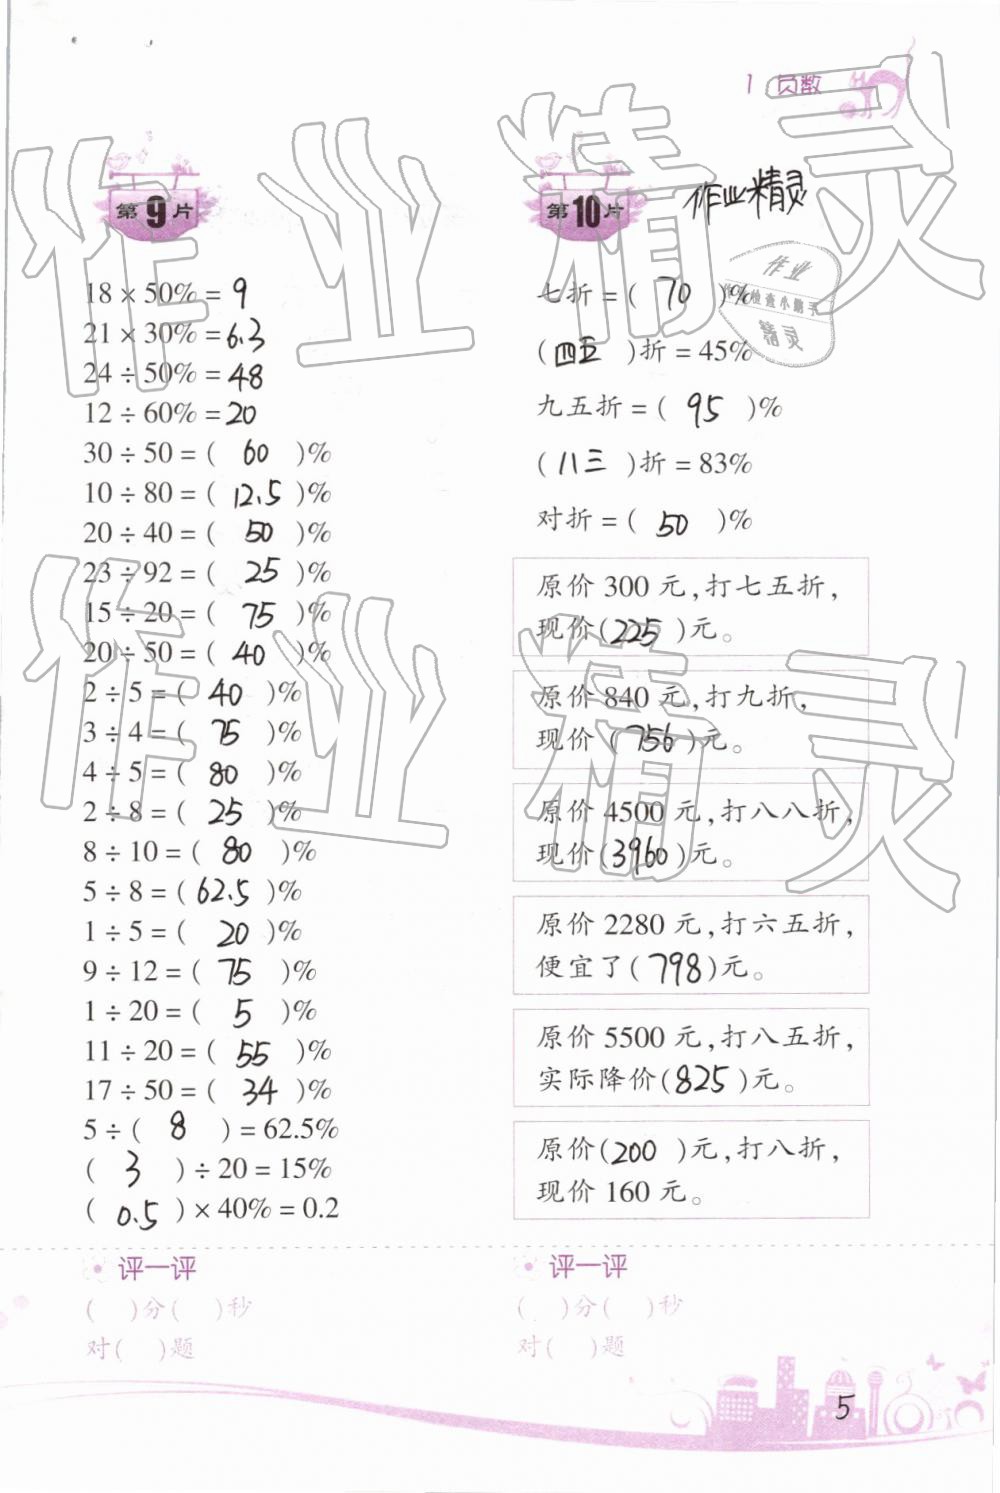 1 负数
第9片
18 × 50% = 9
21 × 30% = 6.3
24 ÷ 50% = 48
12 ÷ 60% = 20
30 ÷ 50 = ( 60 )%
10 ÷ 80 = ( 12.5 )%
20 ÷ 40 = ( 50 )%
23 ÷ 92 = ( 25 )%
15 ÷ 20 = ( 75 )%
20 ÷ 50 = ( 40 )%
2 ÷ 5 = ( 40 )%
3 ÷ 4 = ( 75 )%
4 ÷ 5 = ( 80 )%
2 ÷ 8 = ( 25 )%
8 ÷ 10 = ( 80 )%
5 ÷ 8 = ( 62.5 )%
1 ÷ 5 = ( 20 )%
9 ÷ 12 = ( 75 )%
1 ÷ 20 = ( 5 )%
11 ÷ 20 = ( 55 )%
17 ÷ 50 = ( 34 )%
5 ÷ ( 8 ) = 62.5%
( 3 ) ÷ 20 = 15%
( 0.5 ) × 40% = 0.2
评一评
( )分( )秒
对( )题
第10片
作业精灵
七折 = ( 70 )%
( 四五 )折 = 45%
九五折 = ( 95 )%
( 八三 )折 = 83%
对折 = ( 50 )%
原价 300 元,打七五折,
现价( 225 )元。
原价 840 元,打九折,
现价 ( 756 )元。
原价 4500 元,打八八折,
现价( 3960 )元。
原价 2280 元,打六五折,
便宜了( 798 )元。
原价 5500 元,打八五折,
实际降价( 825 )元。
原价( 200 )元,打八折,
现价 160 元。
评一评
( )分( )秒
对( )题
5
作业精灵
作业精灵
作业
检查小助手
精灵